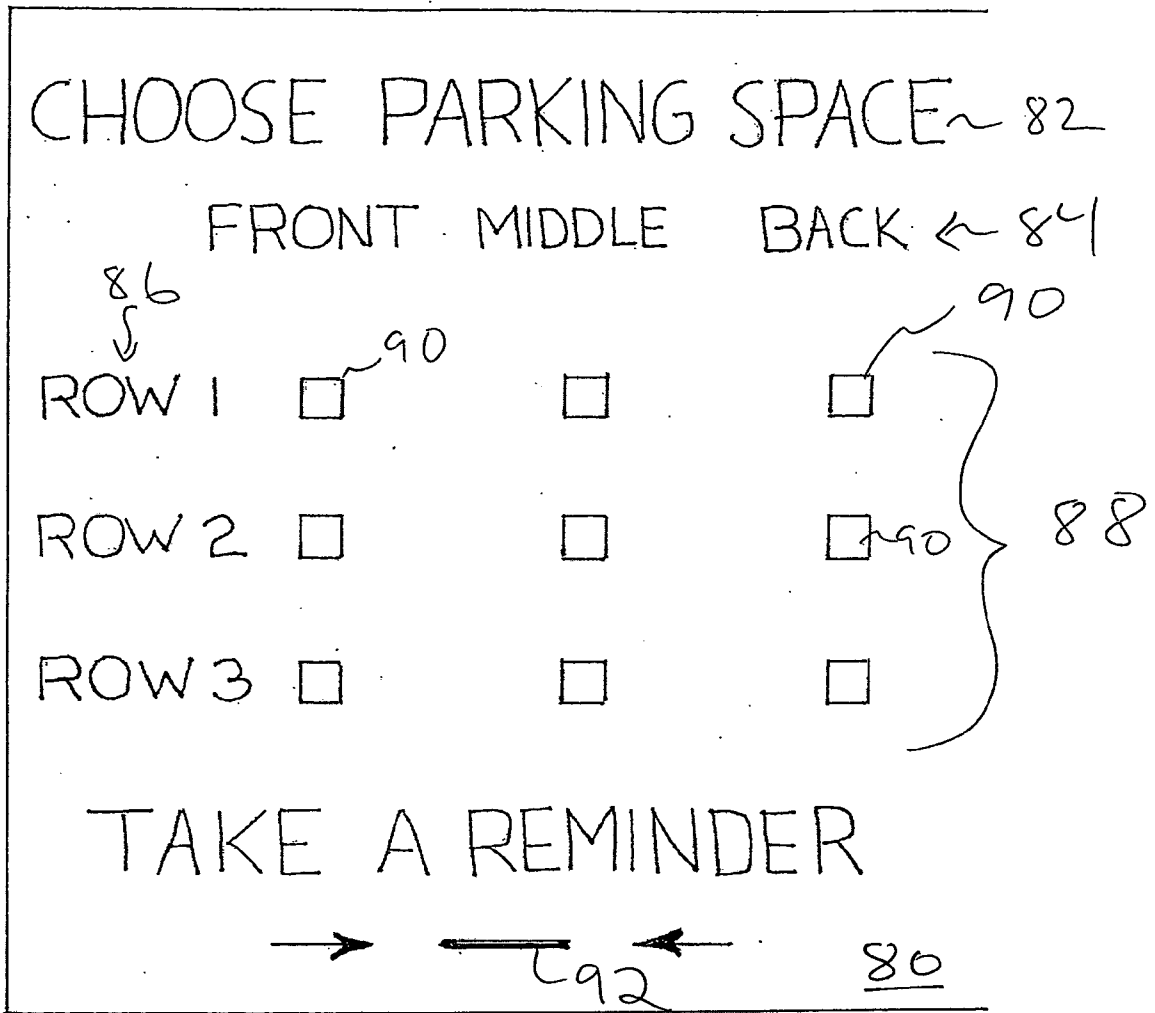 CHOOSE PARKING SPACE 82
FRONT MIDDLE BACK 84
86
90
90
ROW 1
ROW 2
90
88
ROW 3
TAKE A REMINDER
92
80